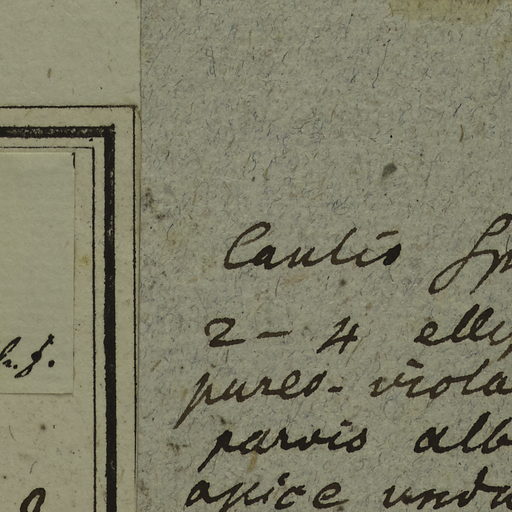 h. f.
Caulis Sp
2 - 4 ellip
pureo-viola
parvis alb
apice undu